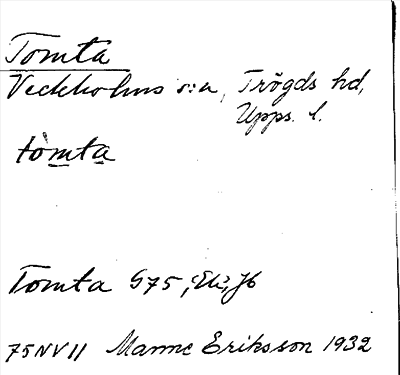 Tomta
Veckholms s:n, Trögds hd,
Upps. l.
tòmta
Tomta G75, Ek, Jb
75NV11 Manne Eriksson 1932